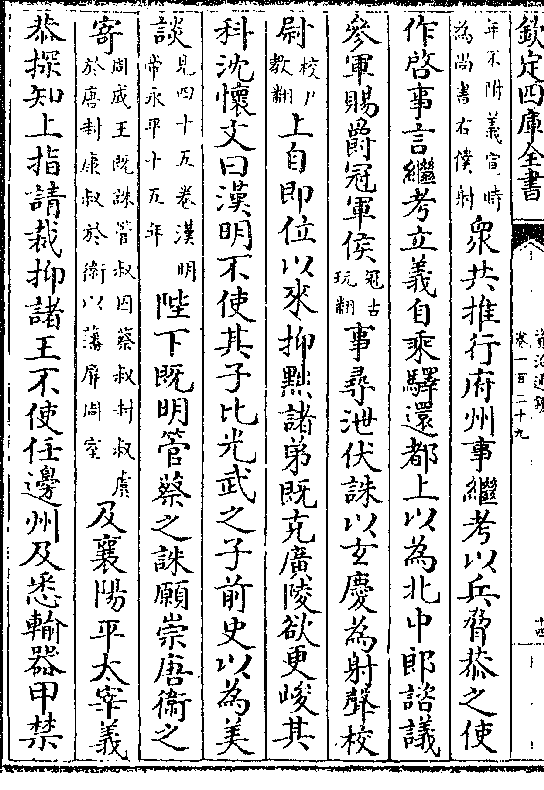 欽定四庫全書
資治通鑑
卷一百二十九
十四
年不附義宣時
為尚書右僕射
衆共推行府州事繼考以兵脅恭之使
作啓事言繼考立義自乘驛還都上以為北中郎諮議
參軍賜爵冠軍侯冠古玩翻事尋泄伏誅以玄慶為射聲校
尉校戶教翻上自即位以來抑黜諸弟既克廣陵欲更峻其
科沈懷文曰漢明不使其子比光武之子前史以為美
談見四十五卷漢明帝永平十五年陛下既明管蔡之誅願崇唐衛之
寄周成王既誅管叔囚蔡叔封叔虞於唐封康叔於衛以藩屏周室及襄陽平太宰義
恭探知上指請裁抑諸王不使任邊州及悉輸器甲禁